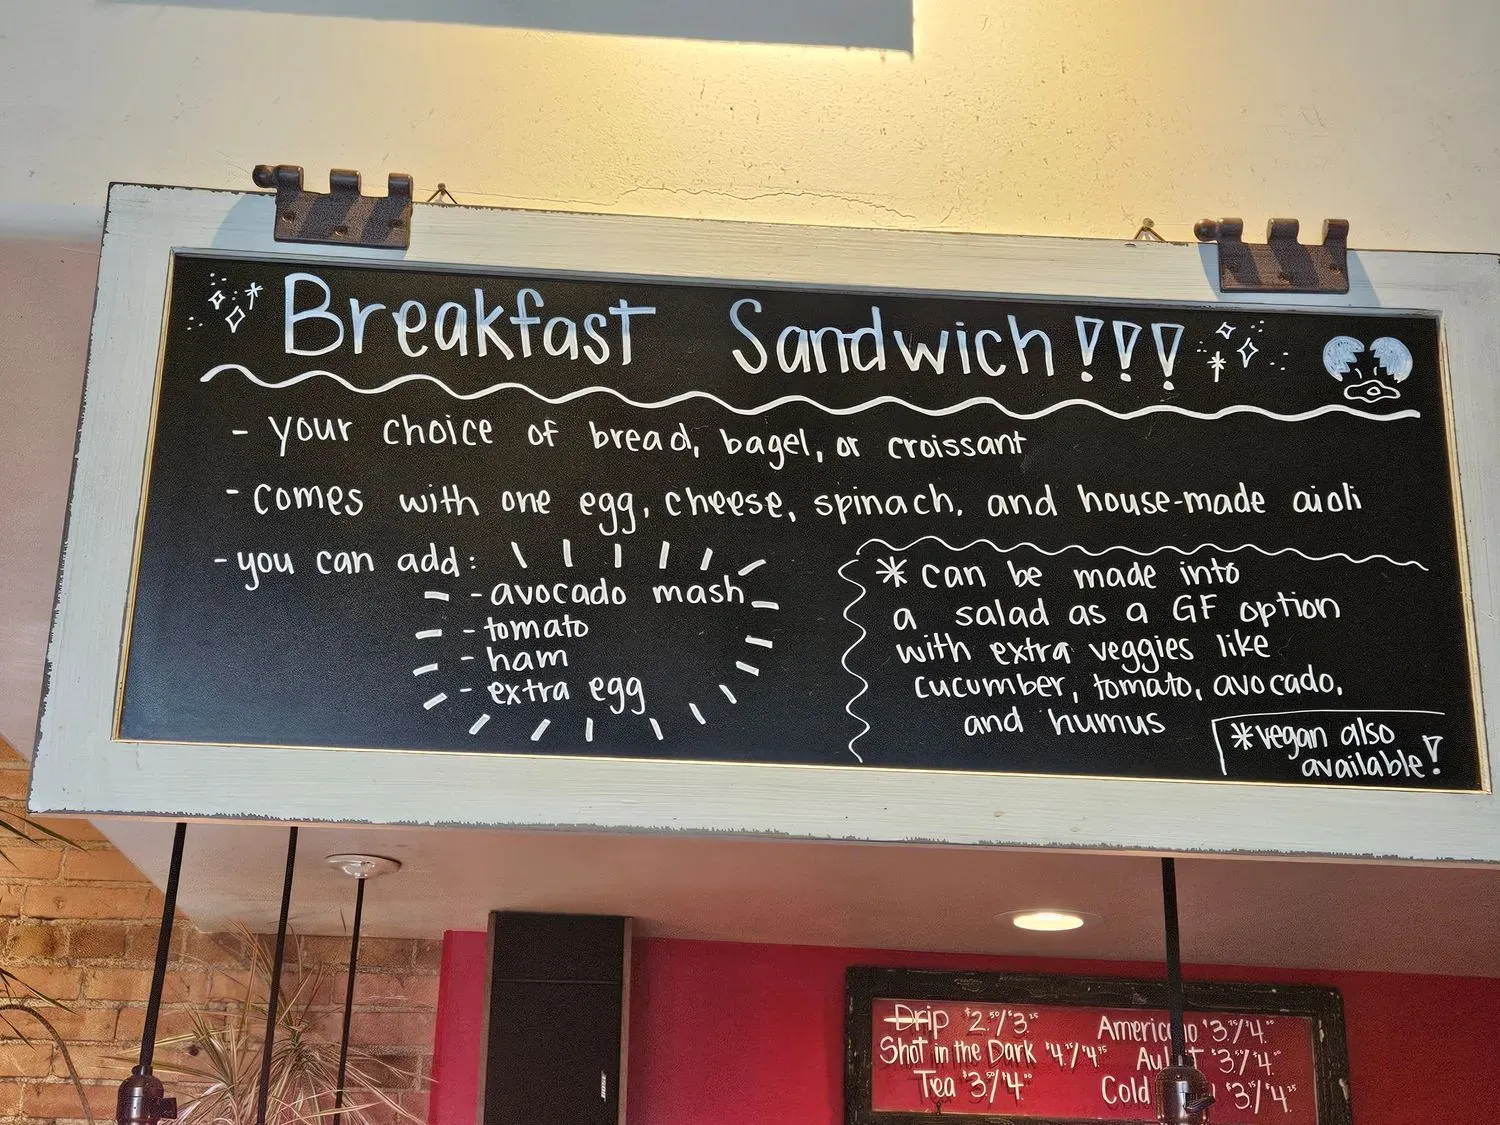 Breakfast Sandwich!!!
- your choice of bread, bagel, or croissant
- comes with one egg, cheese, spinach, and house-made aioli
- you can add:
- avocado mash
- tomato
- ham
- extra egg
* can be made into
a salad as a GF option
with extra veggies like
cucumber, tomato, avocado,
and humus
* vegan also
available!
Drip $2.50/3.25
Shot in the Dark $4.25/$4.75
Tea $3.50/$4.00
$3.75/$4.00
$3.50/$4.00
Cold $3.75/$4.25